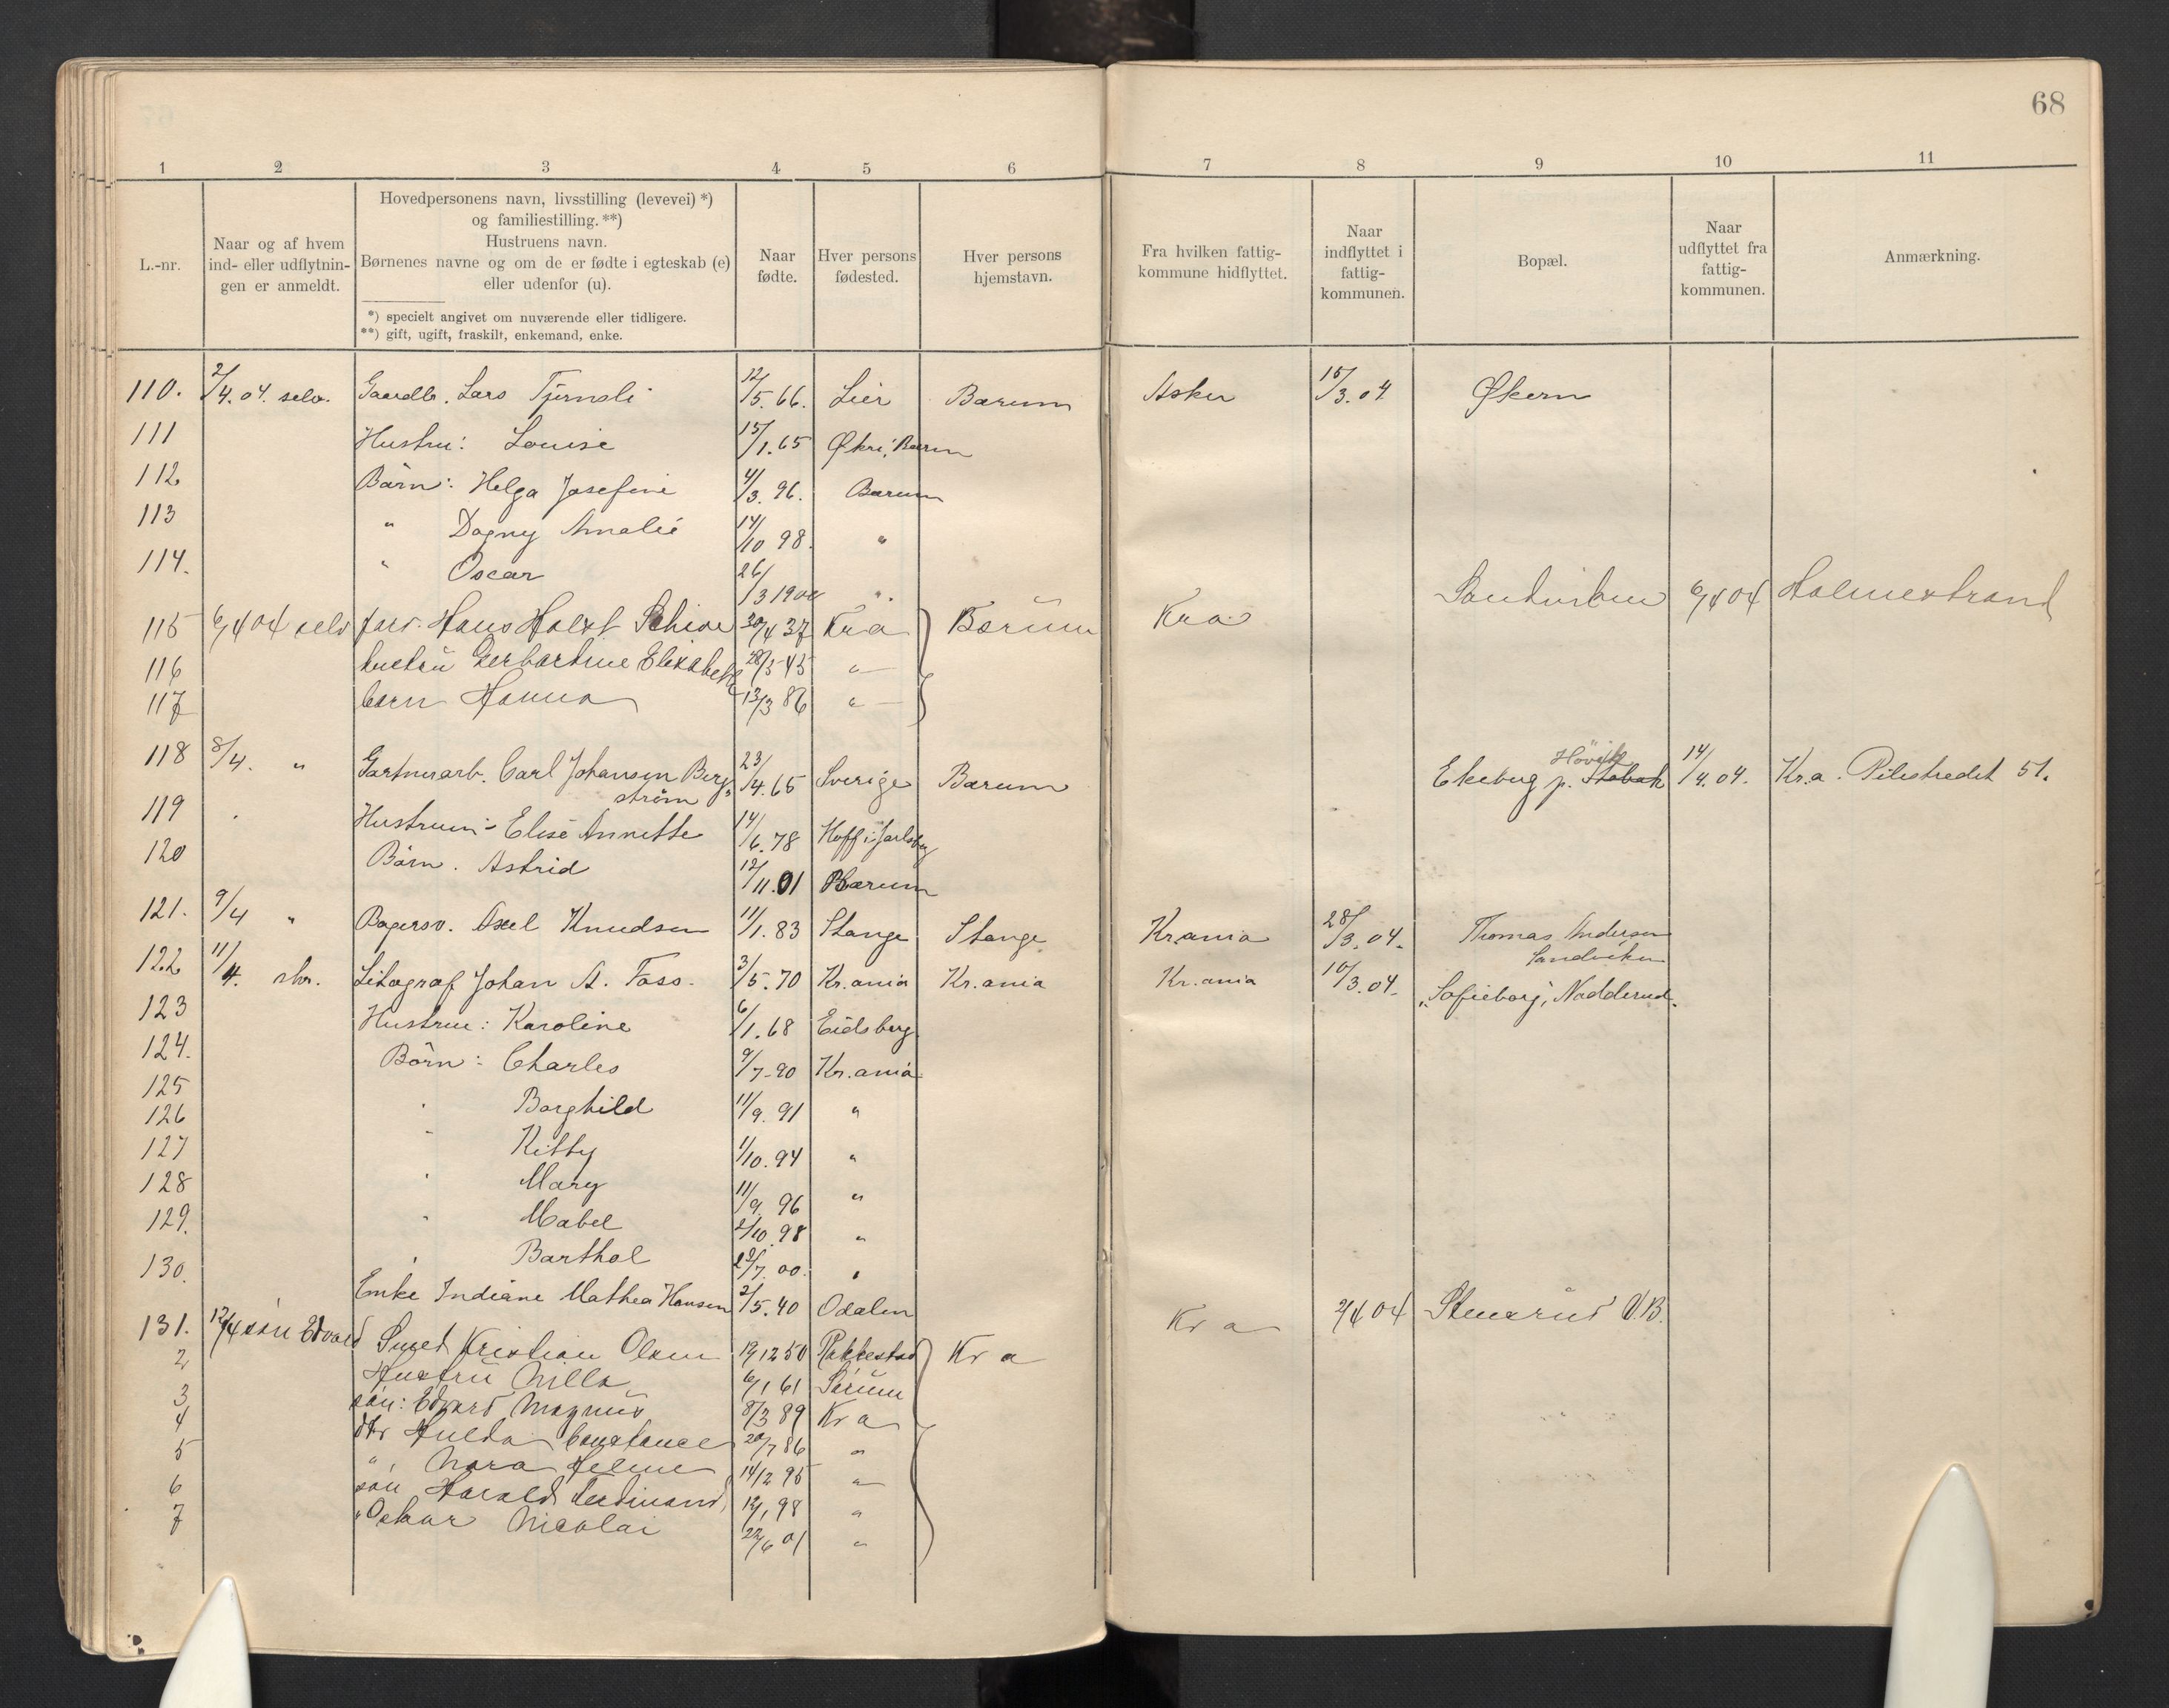 68
1 2 3 4 5 6 7 8 9 10 11
L.-nr.
Naar og af hvem
ind- eller udflytnin-
gen er anmeldt.
Hovedpersonens navn, livsstilling (levevei) *)
og familiestilling. **)
Hustruens navn.
Børnenes navne og om de er fødte i egteskab (e)
eller udenfor (u).
*) specielt angivet om nuværende eller tidligere.
**) gift, ugift, fraskilt, enkemand, enke.
Naar
fødte.
Hver persons
fødested.
Hver persons
hjemstavn.
Fra hvilken fattig-
kommune hidflyttet.
Naar
indflyttet i
fattig-
kommunen.
Bopæl.
Naar
udflyttet fra
fattig-
kommunen.
Anmærkning.
110. 2/4.04. selv. Gaardb. Lars Tjernsli 12/5.66. Lier Bærum Asker 15/3.04 Økern
111 Hustru: Louise 15/1.65 Økri, Bærum
112 Børn: Helga Josefine 4/3.96. Bærum
113 " Dagny Amalie 14/10 98. "
114. " Oscar 26/3 1900 ".
115 6/4 04 selv Hans Holst Schive 20/4 37 Kra Bærum Kra Sandviken 6/4 04 Holmestrand
116 hustru Gerhardine Elisabeth 28/3 43 "
117 barn Hanna 13/3 86 "
118 8/4. " Gartnerarb. Carl Johansen Berg-
strøm 23/4.65 Sverige Bærum Ekeberg p. Høvik Stabæk 14/4.04. Kr.a. Pilestredet 51.
119 Hustru: Elise Annette 14/6.78 Hoff i Jarlsberg
120 Børn. Astrid 12/11.01 Bærum
121. 9/4 " Bagersv. Axel Knudsen 11/1.83 Stange Stange Kr.ania 28/3.04. Thomas Andersen
Sandviken
122 11/4. skr. Litograf Johan A. Foss. 3/5.70 Kr.ania Kr.ania Kr.ania 10/3.04. "Sofieborg", Nadderud.
123 Hustru: Karoline 6/1.68 Eidsberg
124. Børn: Charles 9/7-90 Kr.ania
125 " Borghild 11/9.91 "
126 " Kitty 1/10.94 "
127 " Mary 11/9.96 "
128 " Mabel 2/10.98 "
129. " Barthol 29/7.00. "
130. Enke Indiane Mathea Hansen 2/5.40 Odalen
131. 12/4 søn Edvard Smed Kristian Olsen 19/12 50 Rakkestad Kra Kra 2/4 04 Stenerud V.B.
2 Hustru Milla 6/1 61 Sørum
3 søn: Edvard Magnus 8/3 89 Kra
4 dtr Hulda Constance 20/7 86 "
5 " Nora Helene 14/2 95 "
6 søn Harald Ferdinand 12/1 98 "
7 " Oskar Nicolai 22/6 01 "